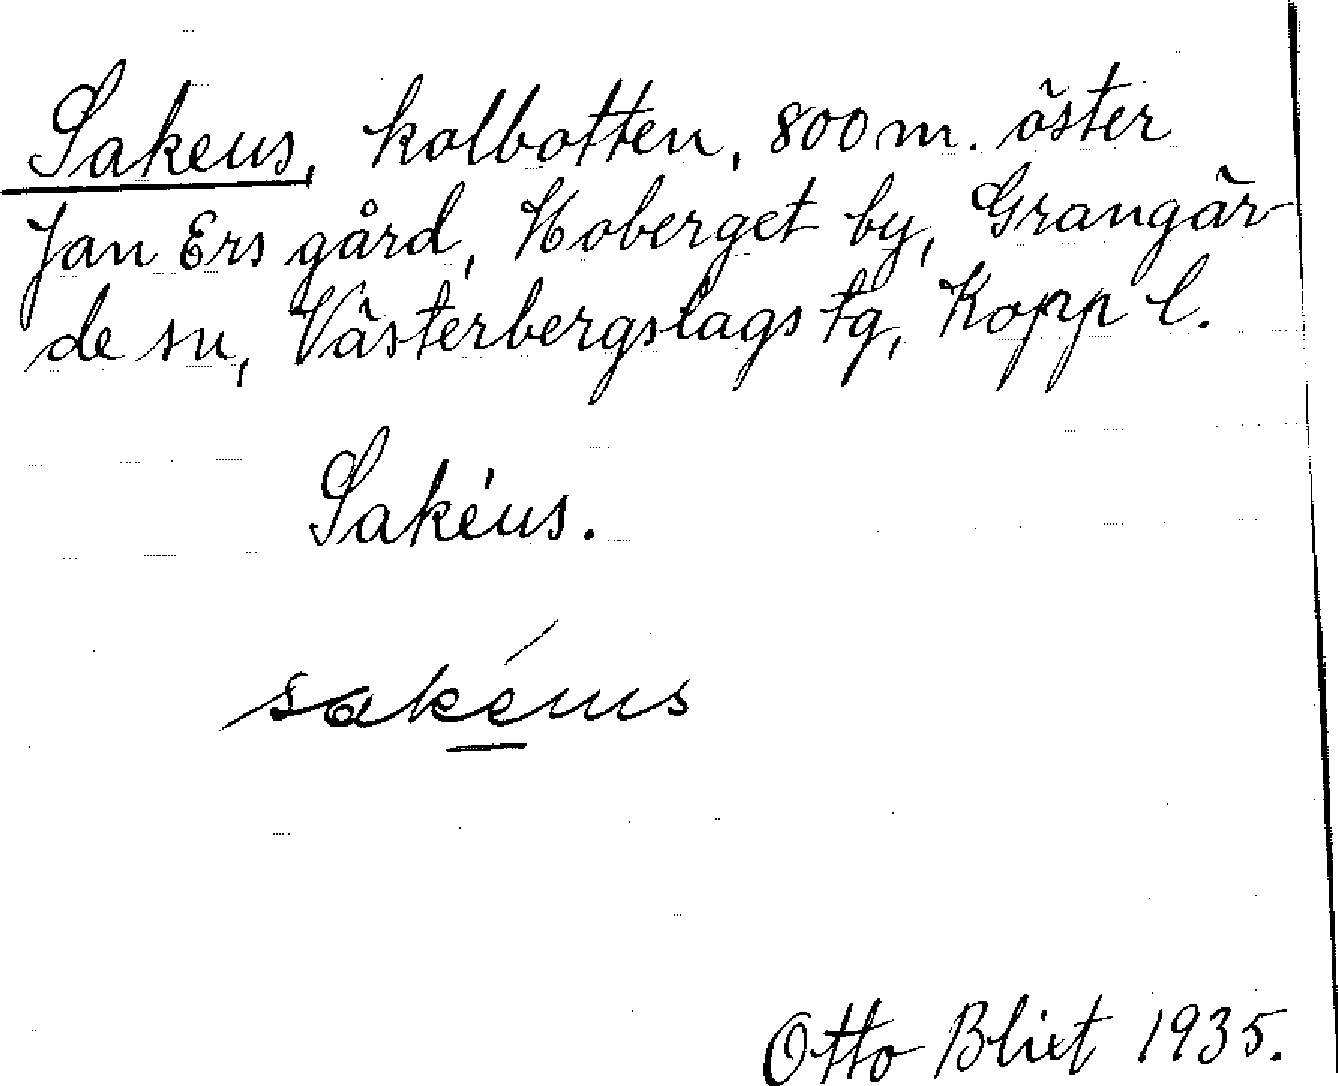 Sakeus, kolbotten, 800 m. öster
Jan Ers gård, Hoberget by, Grangär-
de sn, Västerbergslags tg, Kopp l.
Sakéus.
sakéus
Otto Blixt 1935.